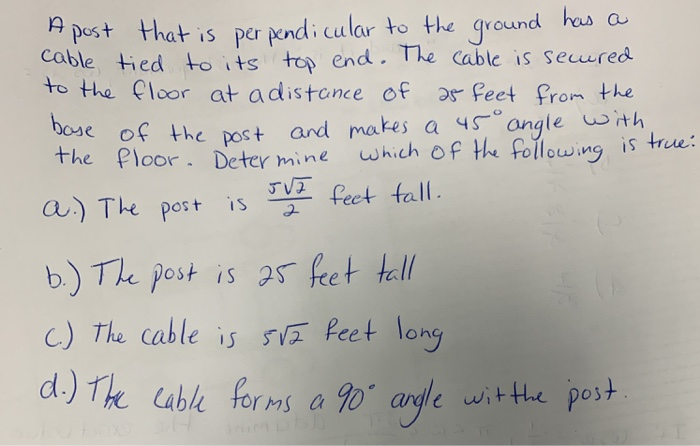 A post that is perpendicular to the ground has a
cable tied to its top end. The cable is secured
to the floor at a distance of 25 feet from the
base of the post and makes a 45° angle with
the floor. Determine which of the following is true:
a.) The post is 5√2/2 feet tall.
b.) The post is 25 feet tall
c.) The cable is 5√2 feet long
d.) The cable forms a 90° angle witthe post.